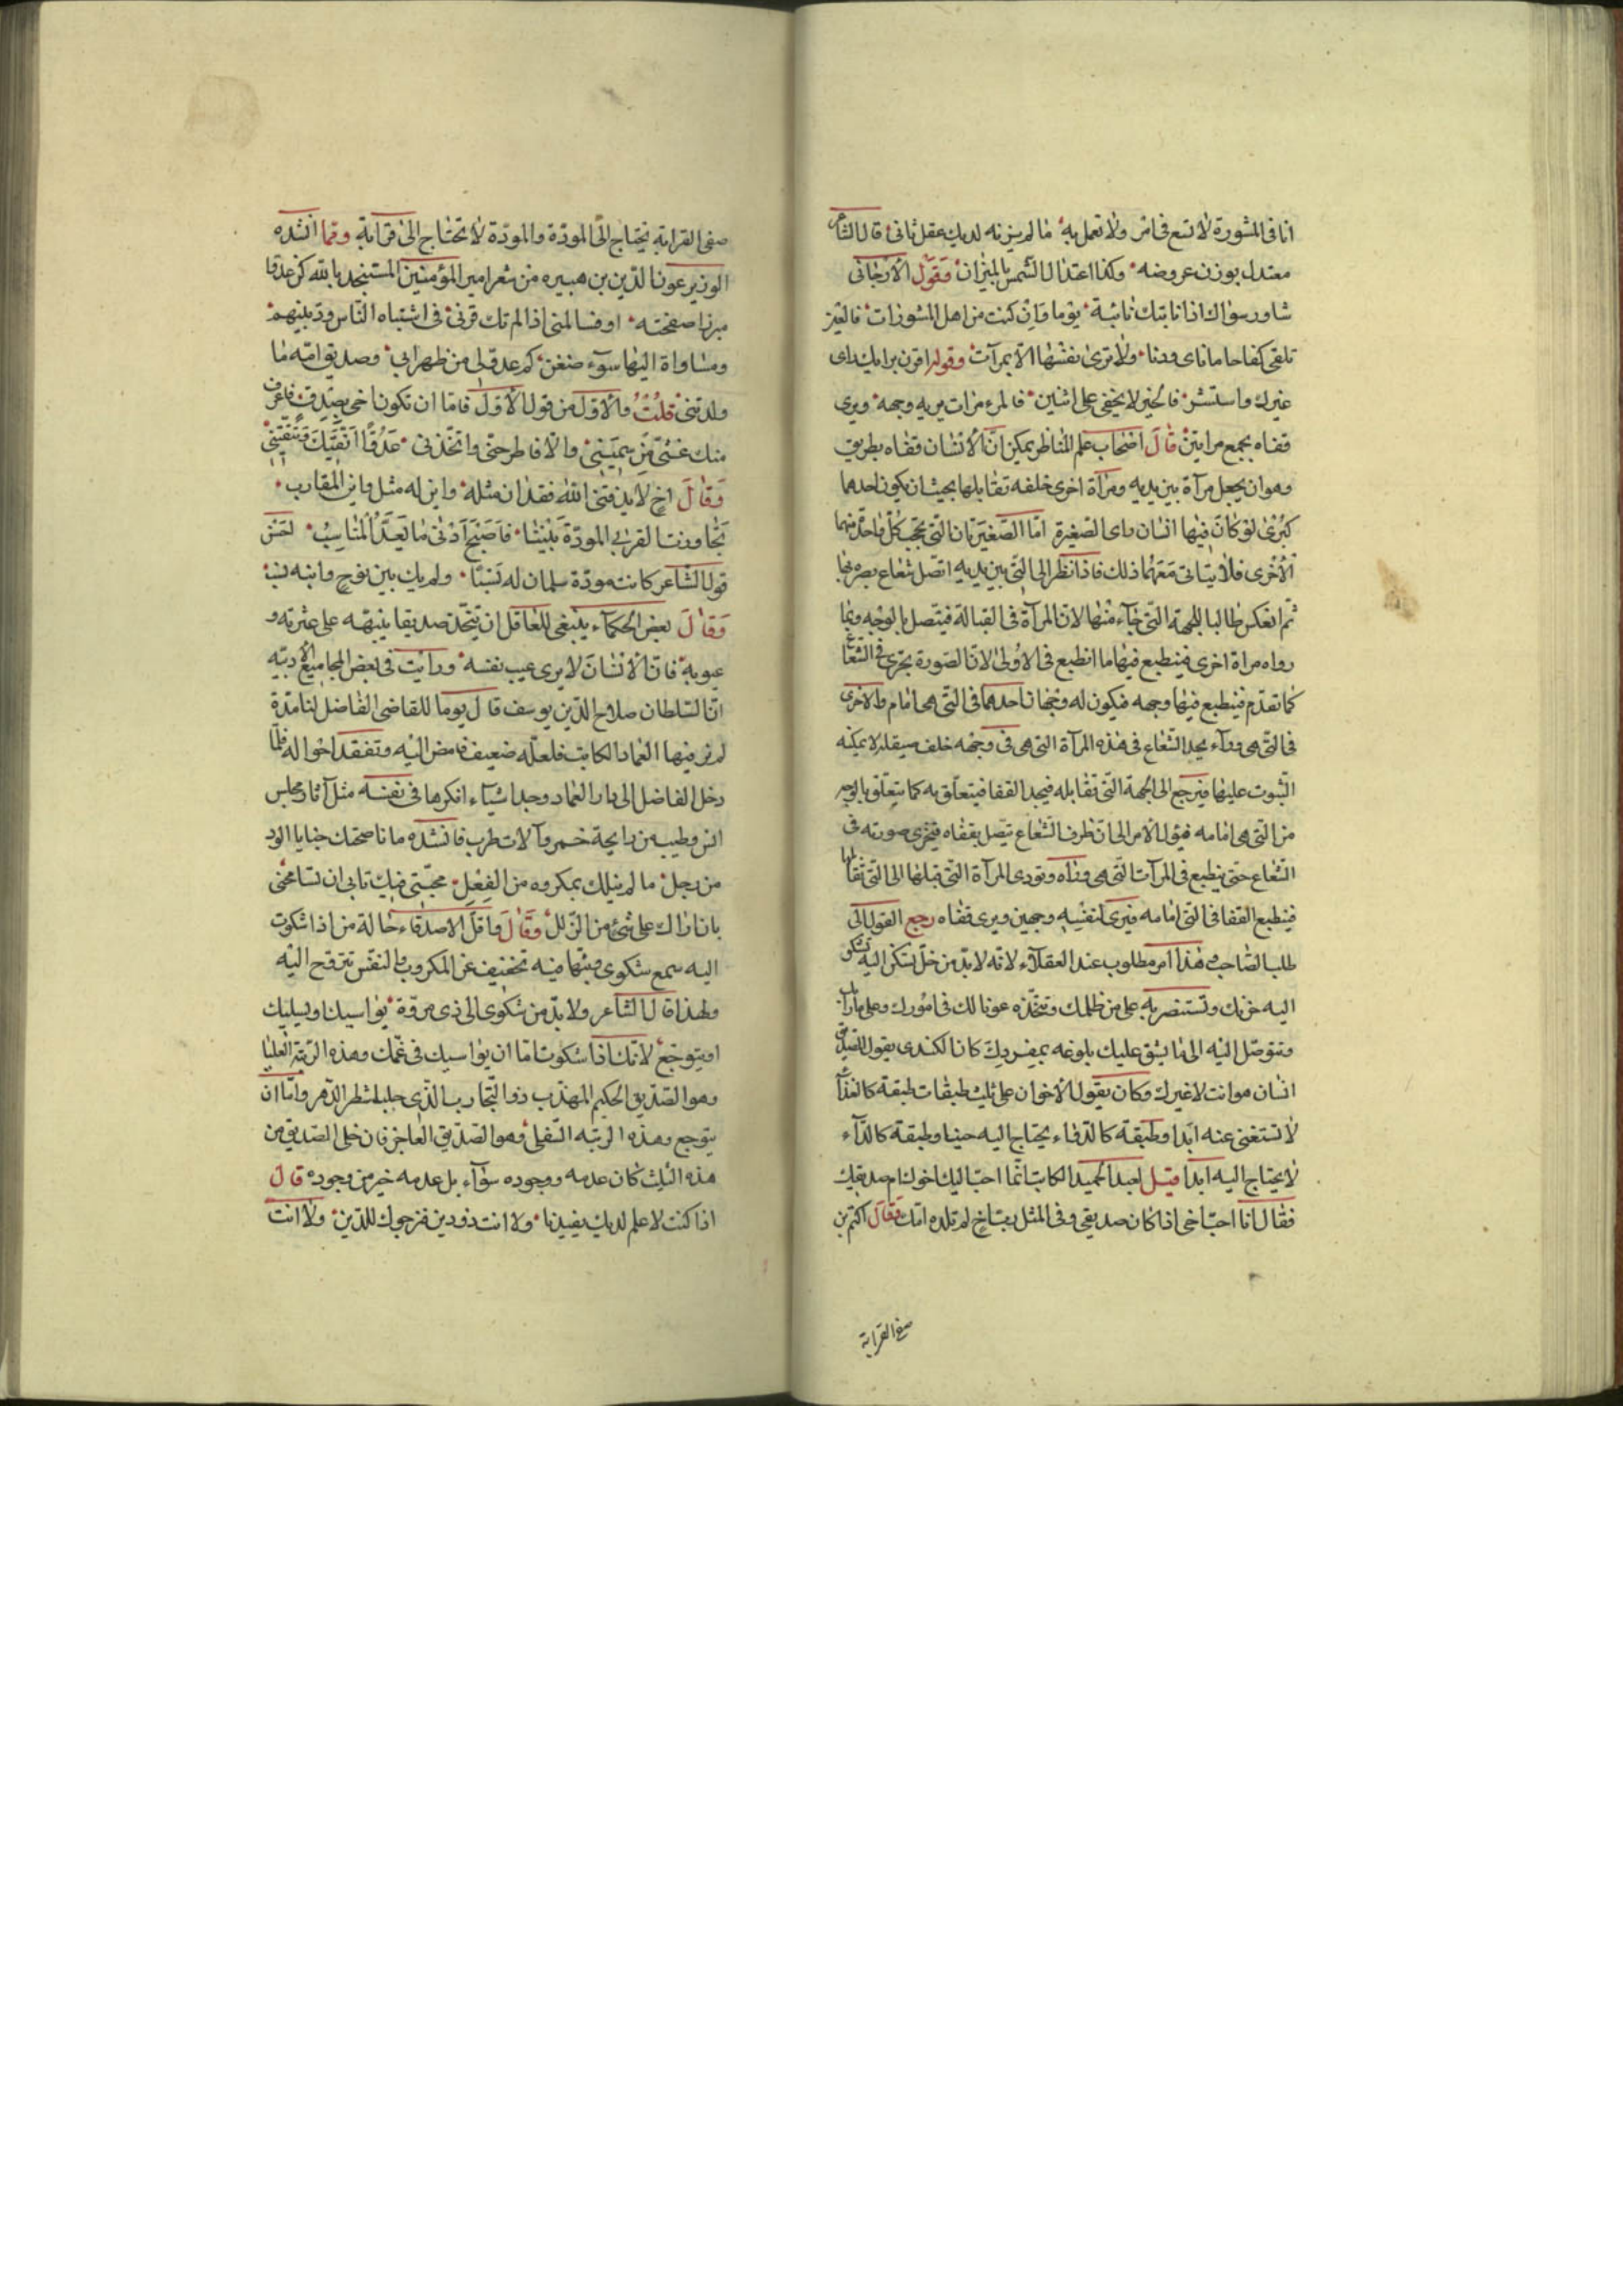 انا فى المشورة لا تسع فى امر ولا تعمل به ما لم يزنه لديك عقل ثانى قال الشاعر
معتدل بوزن عروضه وكذا اعتدال الشمس بالميزان وقول الارجانى
شاور سواك اذا نابتك نائبة يوما وان كنت من اهل المشورات فالعين
تلقى كفاحا ما ناى ودنا ولا ترى نفسها الا بمرآت وقوله اقرن برايك راى
غيرك واستشر فالخير لا يخفى على اثنين فالمرء مرات يريه وجهه ويرى
قفاه بجمع مرايتين قال اصحاب علم المناظر يمكن ان الانسان قفاه بطريق
وهو ان يجعل مرآة بين يديه ومرآة اخرى خلفه تقابلها بحيث ان يكون احدهما
كبرى لو كان فيها انسان راى الصغيرة اما الصغيرتان التى تحجب كل واحدة منهما
الاخرى فلا يتاتى معهما ذلك فاذا نظر الى التى بين يديه اتصل شعاع بصره بها
ثم انعكس طالبا للجهة التى جاء منها لان المرآة فى القبالة فيتصل بالوجه وبما
رواه مراة اخرى فينطبع فيها ما انطبع فى الاولى لان الصورة تجرى فى الشعاع
كما تقدم فينطبع فيها وجهه فيكون له وجهان احدهما فى التى هى امام والاخرى
فى التى هى وراء يجد الشعاع فى هذه المرآة التى هى فى وجهه خلف صيقله لا يمكنه
الثبوت عليها فيرجع الى الجهة التى تقابله فيجد القفا فيتعلق به كما يتعلق بالوجه
من التى هى امامه فيؤل الامر الى ان طرف الشعاع يتصل بقفاه فيجرى صورته فى
الشعاع حتى ينطبع فى المرآت التى هى وراه وتودى المرآة التى قبلها الى التى تقابلها
فينطبع القفا فى التى امامه فيرى لنفسه وجهين ويرى قفاه رجع القول الى
طلب الصاحب وهذا امر مطلوب عند العقلاء لانه لا بد من خل يسكن اليه تشكو
اليه حزنك وتستنصر به على من ظلمك وتتخذه عونا لك فى امورك وعلى مارابك
وتتوصل اليه الى ما يشق عليك بلوغه بمفردك كان الكندى يقول الصديق
انسان هو انت الا غيرك وكان يقول الاخوان على ثلث طبقات طبقة كالغذاء
لا تستغنى عنه ابدا وطبقة كالدواء يحتاج اليه حينا وطبقة كالداء
لا يحتاج اليه ابدا قيل لعبد الحميد الكاتب انما احب اليك اخوك ام صديقك
فقال انا احب اخى اذا كان صديقى وفى المثل رب اخ لم تلده امك وقال اكثم بن
صفى القرابة
صفى القرابة تحتاج الى المودة والمودة لا تحتاج الى قرابة ومما انشده
الوزير عون الدين بن هبيره من شعر امير المؤمنين المستنجد بالله كن عدوا
مبرزا صفحته او فسالمنى اذا لم تك قرنى فى اشتباه الناس ود بينهم
ومساواة اليها سوء ضغن كم عدو لى من ظهر ابى وصديق امه ما
ولدتنى قلت والاول من قول الاول فاما ان تكون اخى بصدق فاعرف
منك غثى من سمينى والا فاطرحنى واتخذنى عدوا اتقيك وتتقينى
وقال اخ لا يذقنى الله فقدان مثله واين له مثل واين المقارب
تجاوزت القربى المودة بيننا فاصبح ادنى ما يعد المناسب لحسن
قول الشاعر كانت مودة سلمان له نسبا ولم يك بين نوح وابنه نسبه
وقال بعض الحكماء ينبغى للعاقل ان يتخذ صديقا ينبهه على عثرته و
عيوبه فان الانسان لا يرى عيب نفسه ورايت فى بعض المجاميع الادبيه
ان السلطان صلاح الدين يوسف قال يوما للقاضى الفاضل لنا مدة
لم نر فيها العماد الكاتب فلعله ضعيف فامض اليه وتفقد احواله فلما
دخل الفاضل الى دار العماد وجد اشياء انكرها فى نفسه مثل آثار مجلس
انس وطيب من رايحة خمر وآلات طرب فانشده ما ناصحتك خبايا الود
من رجل ما لم ينلك بمكروه من الفعل محبتى فيك تابى ان تسامحنى
بان اراك على شئ من الزلل وقال واقل الاصدقاء حالة من اذا شكوت
اليه سمع شكوى وبثها فيه تخفيف عن المكروب والنفس تتروح اليه
ولهذا قال الشاعر ولا بد من شكوى الى ذى مروة يواسيك او يسليك
او يتوجع لانك اذا شكوت اما ان يواسيك فى غمك وهذه الرتبة العليا
وهو الصديق الحكيم المهذب ذو التجارب الذى حلب اشطر الدهر واما ان
يتوجع وهذه الرتبه السفلى وهو الصديق العاجز فان خلى الصديق من
هذه الثلث كان عدمه ووجوده سواء بل عدمه خير من وجوده قال
اذا كنت لا علم لديك يفيدنا ولا انت ذو دين فنرجوك للدين ولا انت